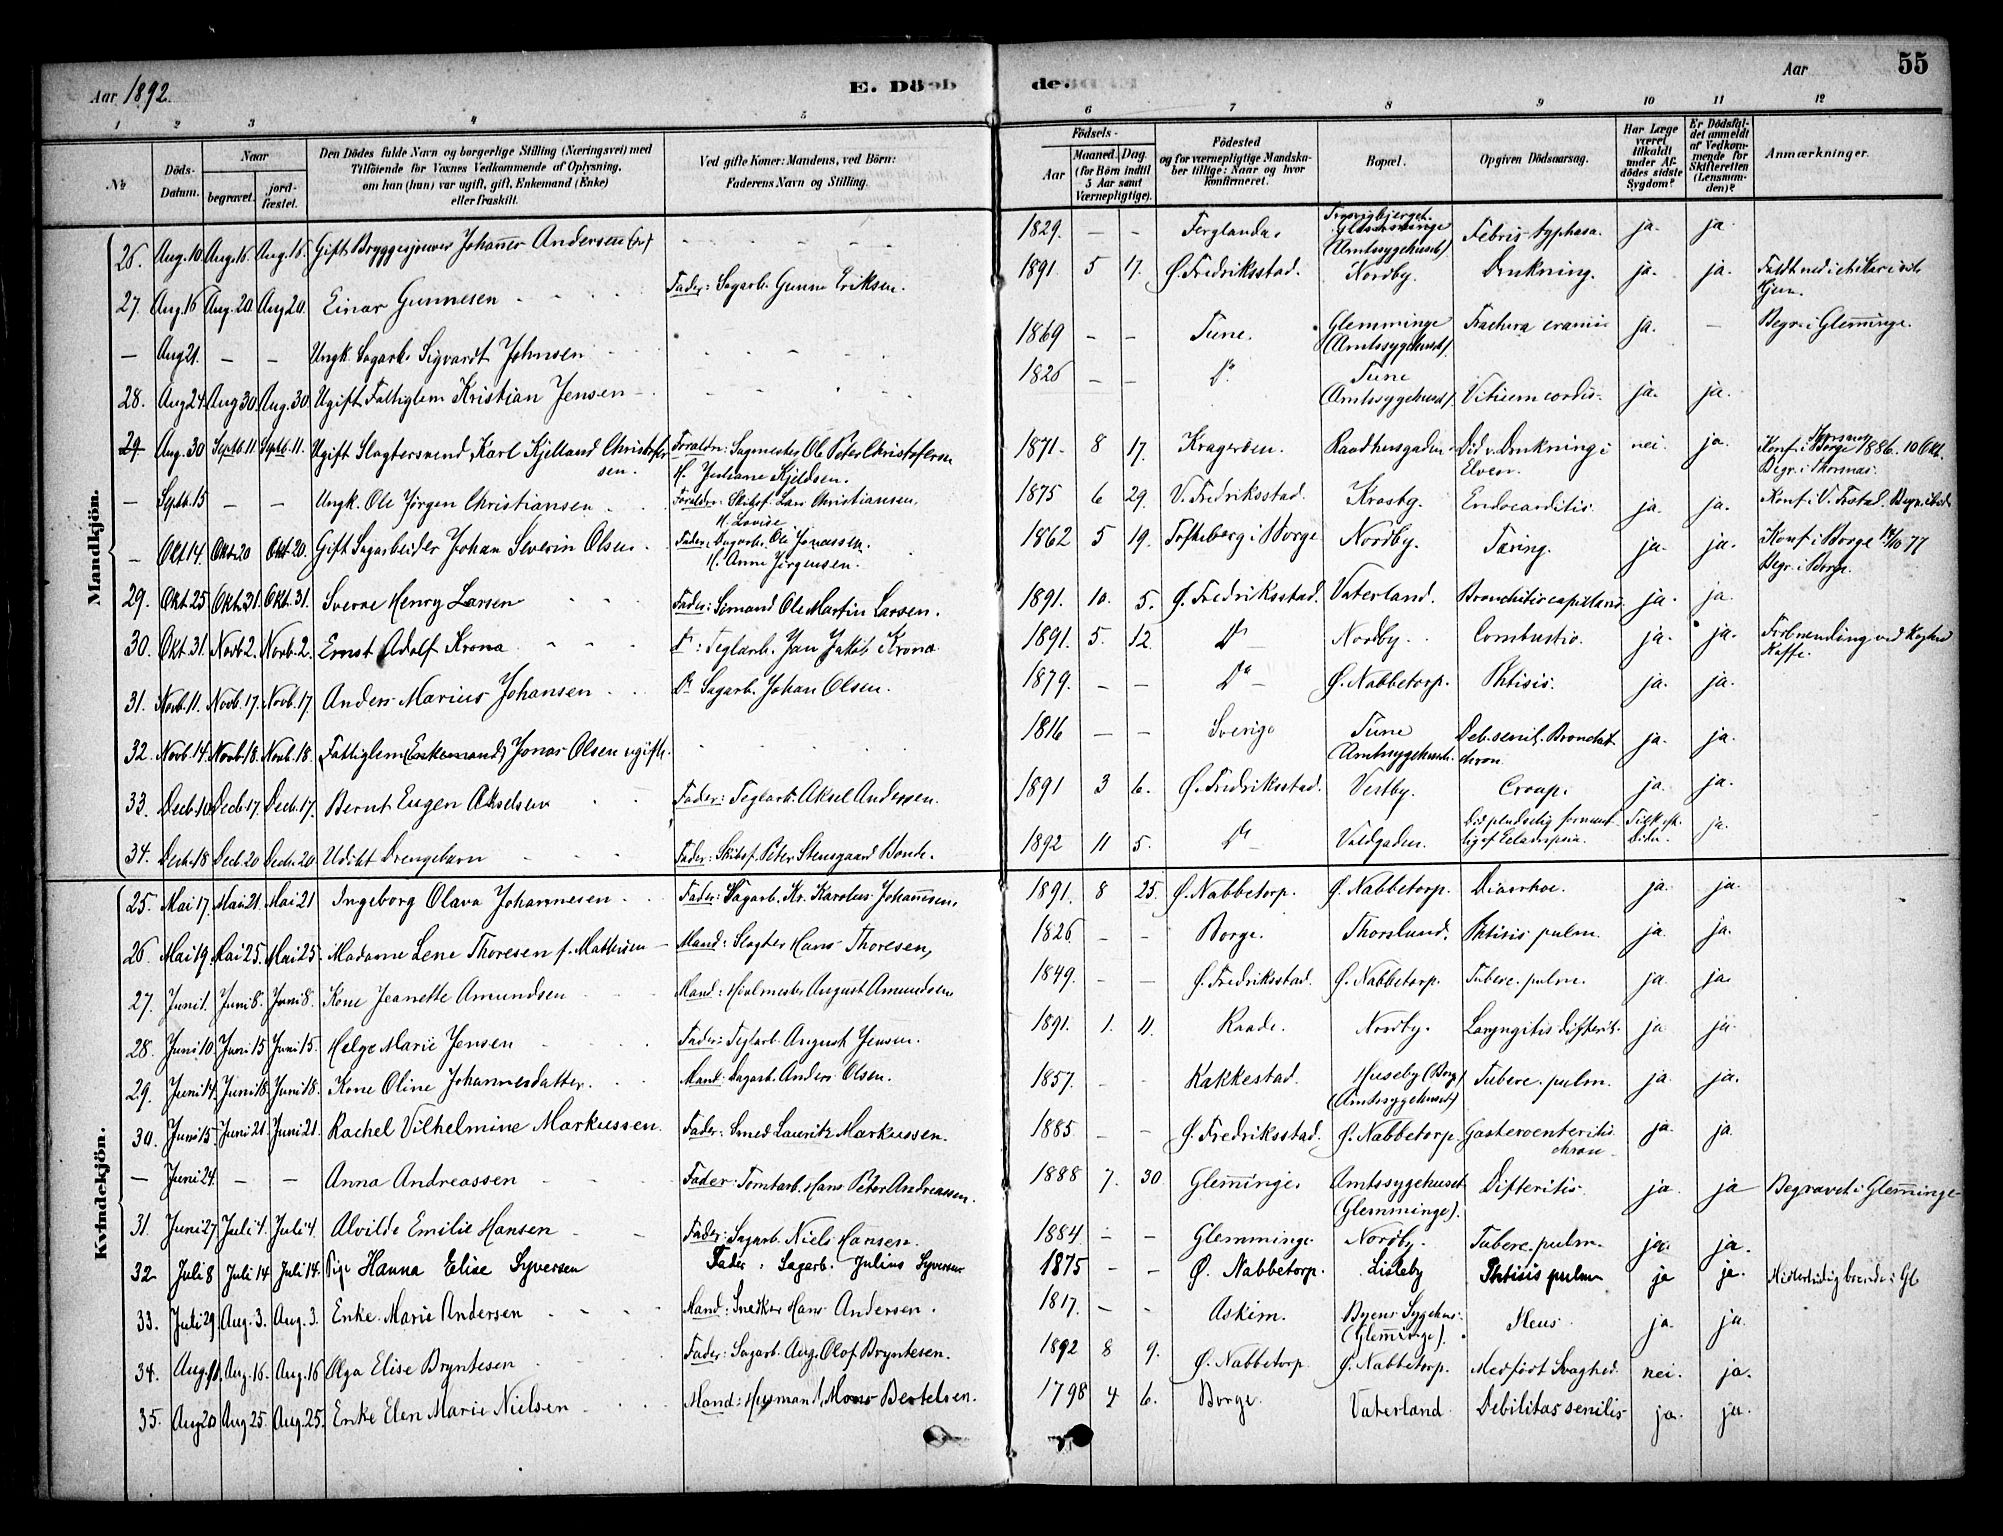 Aar 1892. E. Döebde. Aar 55
1 2 3 4 5 6 7 8 9 10 11 12
№ Döds-Datum. Naar begravet. jord-fæstet.
Den Dödes fulde Navn og borgerlige Stilling (Næringsvei) med
Tilföiende for Voxnes Vedkommende af Oplysning,
om han (hun) var ugift, gift, Enkemand (Enke)
eller fraskilt.
Ved gifte Koner: Mandens, ved Börn:
Faderens Navn og Stilling.
Födsels-
Aar Maaned. Dag.
(for Börn indtil
5 Aar samt
Værnepligtige).
Födested
og for værnepligtige Mandska-
ber tillige: Naar og hvor
konfirmeret.
Bopæl.
Opgiven Dödsaarsag.
Har Læge
været
tilkaldt
under Af-
dödes sidste
Sygdom?
Er Dödsfal-
det anmeldt
af Vedkom-
mende for
Skifteretten
(Lensman-
den)?
Anmærkninger.
Mandkjön.
26. Aug. 10 Aug. 16 Aug. 16. Gift Bryggesjouer Johannes Andersen 1829. – – Ferglanda. Glemminge (Amtssygehuset) Febris typhosa. ja. ja.
27. Aug. 16 Aug. 20 Aug. 20. Einar Gunnesen Fader: Sagarb. Gunne Eriksen. 1891. 5 17. Ø. Fredriksstad. Nordby. Drukning. ja. ja. Faldt ned i et Kar
– Aug 21. – – Ungk. Sagarb. Sigvardt Johnsen 1869 – – Tune. Glemminge (Amtssygehuset) Fractura cranii ja. – Begr. i Glemminge.
28. Aug 24 Aug 30. Aug. 30. Ugift Fattiglem Kristian Jensen 1826 – – Do. Tune (Amtssygehuset). Vitium cordis. ja. ja.
29 Aug. 30 Septb. 11. Septb. 11. Ugift Slagtersvend Karl Kjelland Christofersen. Forældre: Sagmester Ole Peter Christofersen H. Juliane Kjeldsen. 1871. 8 17. Kragerøen. Raadhusgaden Død v. Drukning i Elven. nei. ja. Konf. i Borge 1886. 10 Okt. Begr. i Thorsnæs.
– Septb. 15 – – Ungk. Ole Jørgen Christiansen Forældre: Skibsf. Lars Christiansen. H. Lovise 1875 6 29. V. Fredriksstad. Krosby. Endocarditis. ja. ja. Konf. i V. Frstad. Begr. ibid
– Okt 14. Okt. 20 Okt 20. Gift Sagarbeider Johan Severin Olsen. Fader: Sagarb. Ole Jonassen. H. Anne Jørgensen. 1862 5 19. Torkeberg i Borge Nordby. Tæring. ja. ja. Konf. i Borge 14/10 77 Begr. i Borge.
29. Okt. 25 Okt. 31. Okt. 31. Sverre Henry Larsen Fader: Sømand Ole Martin Larsen. 1891. 10. 5. Ø. Fredriksstad. Vaterland. Bronchitis capillaris. ja. ja.
30. Okt. 31. Novb. 2. Novb. 2. Ernst Adolf Krona. Do: Teglarb. Jan Jakob Krona. 1891. 5. 12. Do – Nordby. Combustio. ja. ja. Forbrænding ved Koghed Kaffe.
31. Novb. 11. Novb. 17. Novb. 17. Anders Marius Johansen Do Sagarb. Johan Olsen. 1879. – – Do – Ø. Nabbetorp. Phtisis. ja. ja.
32. Novb. 14. Novb. 18. Novb. 18. Fattiglem (Enkemand) Jonas Olsen ugift. 1816 – – Sverige Tune Amtssygehuset. Deb. senil. Bronchit. chron. ja. ja.
33. Decb. 10 Decb. 17. Decb. 17. Bernt Eugen Akselsen Fader: Teglarb. Aksel Andersen. 1891 3 6. Ø. Fredriksstad. Vestby. Croup. ja. ja.
34. Decb. 18 Decb. 20 Decb. 20 Udøbt Drengebarn Fader: Skibsf. Peter Stensgaard Bonde. 1892 11 5. Do – Voldgaden. Død pludselig formentlig af Eclampsia. ja.
Kvindekjön.
25. Mai 17. Mai 21. Mai 21 Ingeborg Olava Johannesen Fader: Sagarb. Kr. Karolus Johannesen. 1891. 8 25. Ø. Nabbetorp. Ø. Nabbetorp. Diarrhoe. ja. ja.
26 Mai 19. Mai 25. Mai 25. Madame Lene Thoresen f. Mathisen Mand: Slagter Hans Thoresen, 1826 – – Borge. Thorslund. Phtisis pulm. ja. ja.
27. Juni 1. Juni 8. Juni 8. Kone Jeanette Amundsen Mand: Hjulmester August Amundsen 1849. – – Ø. Fredriksstad. Ø. Nabbetorp. Tuberc. pulm. ja ja.
28. Juni 10. Juni 15 Juni 15. Helge Marie Jensen Fader: Teglarb. August Jensen. 1891. 1. 11. Raade. Nordby. Laryngitis difterit. ja ja.
29. Juni 14. Juni 18. Juni 18. Kone Oline Johannesdatter. Mand: Sagarb. Anders Olsen. 1857. – – Rakkestad. Huseby (Borge) (Amtssygehuset) Tuberc. pulm. ja. ja.
30. Juni 15 Juni 21. Juni 21. Rachel Vilhelmine Markussen. Fader: Smed Lauritz Markussen. 1885. – – Ø. Fredriksstad. Ø. Nabbetorp. Gastroenteritis chron. ja. ja.
– Juni 24. – – Anna Andreassen Fader: Tomtarb. Hans Peter Andreassen. 1888 7. 30. Glemminge. Amtssygehuset (Glemminge). Difteritis. ja. ja Begravet i Glemminge
31. Juni 27. Juli 4. Juli 4. Alvilde Emilie Hansen Fader: Sagarb. Niels Hansen. 1884. – – Glemminge. Nordby. Tuberc. pulm. ja. ja.
32 Juli 8 Juli 14 Juli 14. Pige Hanna Elise Syversen Fader: Sagarb. Julius Syversen 1875 – – Ø. Nabbetorp. Lisleby Phtisis pulm ja ja.
33. Juli 29 Aug. 3. Aug. 3. Enke Marie Andersen Mand: Snedker Hans Andersen. 1817. – – Askim. Byens Sygehus. (Glemminge). Ileus. ja. ja.
34. Aug. 11. Aug. 16. Aug. 16 Olga Elise Bryntesen Fader: Sagarb. Aug. Olof Bryntesen. 1892 8 9. Ø. Nabbetorp. Ø. Nabbetorp. Medfødt Svaghed. nei. ja.
35. Aug 20 Aug 25. Aug. 25. Enke Elen Marie Nielsen Mand: Husmand Mons Bertelsen. 1798 4 6. Borge. Vaterland. Debilitas senilis ja. ja.